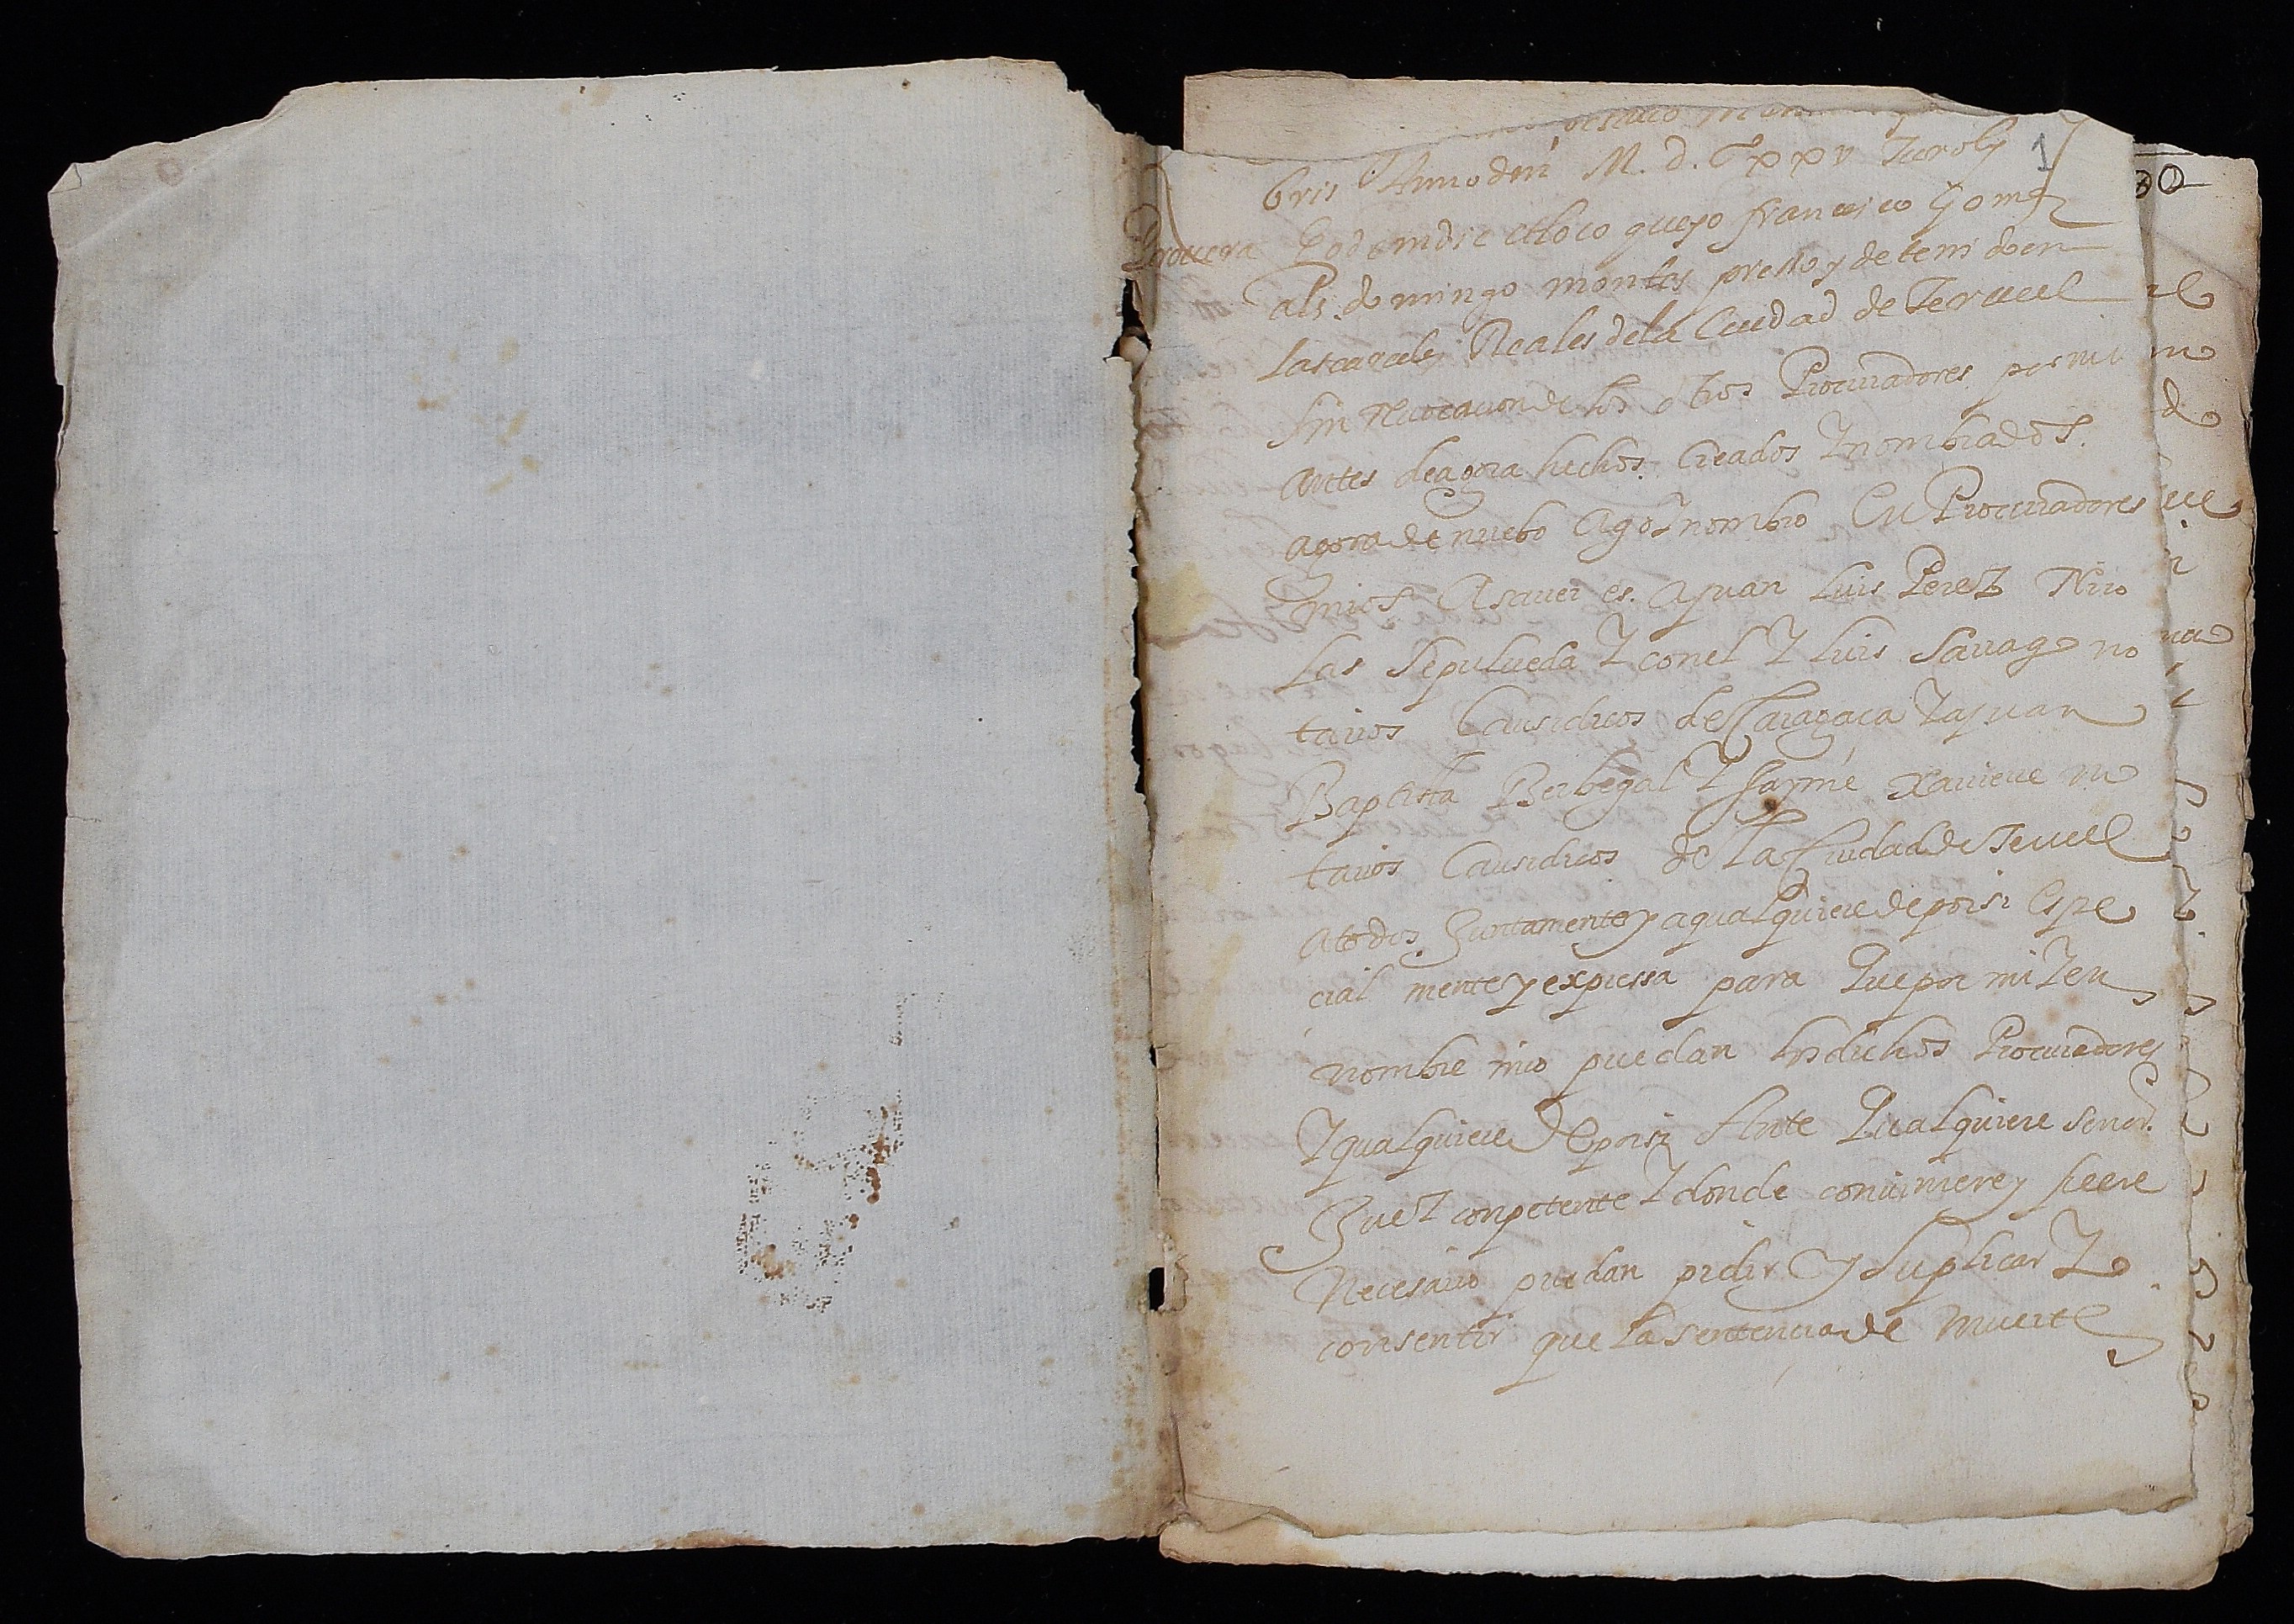 bris Anno dni M. d. Cxxv Turolij
Eodem die et loco que yo francisco Gomez
als. domingo montes presso y detenido en
las carceles Reales dela Ciudad de Teruel
sin revocacion de los otros Procuradores por mi
antes de agora hechos. Creados Y nombrados.
agora de nuebo Ago Y nombro En Procuradores
mios Asaver es. a Juan Luis Perez Nico
las Sepulveda Y conel Y Luis Savag no
tarios Causidicos de Caragaça Y a Juan
Baptista Berbegal Y Jayme Xavierre no
tarios Causidicos de la Ciudad de Teruel
a todos Juntamente y a qualquiere de por si Espe
cial mente y expressa para Que por mi Y en
nombre mio puedan los dichos Procuradores
Y qualquiere de por si Ante Qualquiere Senor
Juez conpetente Y donde conviniere y fuere
Necesario puedan pidir Y Suplicar Y
consentir que la sentencia de muerte